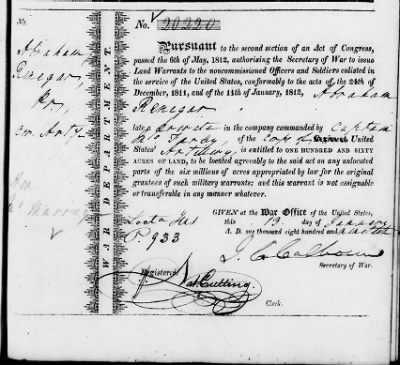 No.
No. 20220
Abraham
Renegar,
Pr,
Cor. Arty
WAR DEPARTMENT.
Pursuant to the second section of an Act of Congress,
passed the 6th of May, 1812, authorising the Secretary of War to issue
Land Warrants to the noncommissioned Officers and Soldiers enlisted in
the service of the United States, conformably to the acts of the 24th of
December, 1811, and of the 11th of January, 1812, Abraham
Renegar
late a private in the company commanded by Captain
of the corps of United
States' Artillery, is entitled to ONE HUNDRED AND SIXTY
ACRES OF LAND, to be located agreeably to the said act on any unlocated
parts of the six millions of acres appropriated by law for the original
grantees of such military warrants; and this warrant is not assignable
or transferable in any manner whatever.
GIVEN at the War Office of the United States,
this 13 day of January
A. D. one thousand eight hundred and
P. 933
J. C. Calhoun
Secretary of War.
Registered
Nat. Cutting.
Clerk.